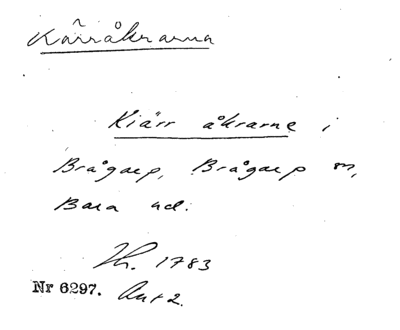 Kärråkrarna
Kiärr åkrarne i
Brågarp, Brågarp sn,
Bara hd.
Th. 1783
Nr 6297. Akt 2.